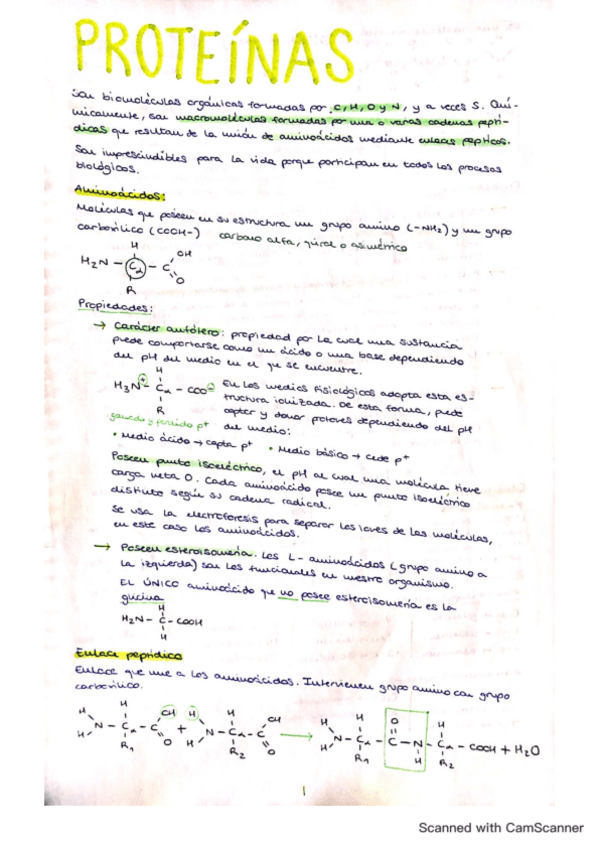 PROTEÍNAS
Son biomoléculas orgánicas formadas por C, H, O y N, y a veces S. Quí-
micamente, son macromoléculas formadas por una o varias cadenas peptí-
dicas que resultan de la unión de aminoácidos mediante enlaces pepticos.
Son imprescindibles para la vida porque participan en todos los procesos
biológicos.
Aminoácidos:
Moléculas que poseen en su estructura un grupo amino (-NH₂) y un grupo
carboxílico (COOH-) carbono alfa, quiral o asimétrico
H OH
H₂N - Cα - C
R O
Propiedades:
→ Carácter anfótero: propiedad por la cual una sustancia
puede comportarse como un ácido o una base dependiendo
del pH del medio en el que se encuentre.
H
H₃N⁺ - Cα - COO⁻ En los medios fisiológicos adopta esta es-
R tructura ionizada. De esta forma, puede
captar y donar protones dependiendo del pH
ganando y perdido p⁺ del medio:
• Medio ácido → capta p⁺ • Medio básico → cede p⁺
Poseen punto isoeléctrico, el pH al cual una molécula tiene
carga neta 0. Cada aminoácido posee un punto isoeléctrico
distinto según su cadena radical.
Se usa la electroforesis para separar los iones de las moléculas,
en este caso los aminoácidos.
→ Poseen esteroisomería. Los L-aminoácidos (grupo amino a
la izquierda) son los funcionales en nuestro organismo.
EL ÚNICO aminoácido que no posee esteroisomería es la
glicina
H
H₂N - C - COOH
H
Enlace peptídico
Enlace que une a los aminoácidos. Intervienen grupo amino con grupo
carboxílico.
H H OH H H OH H H O H
N - Cα - C + N - Cα - C → N - Cα - C - N - Cα - COOH + H₂O
H R₁ O H R₂ O H R₁ H R₂
1
Scanned with CamScanner